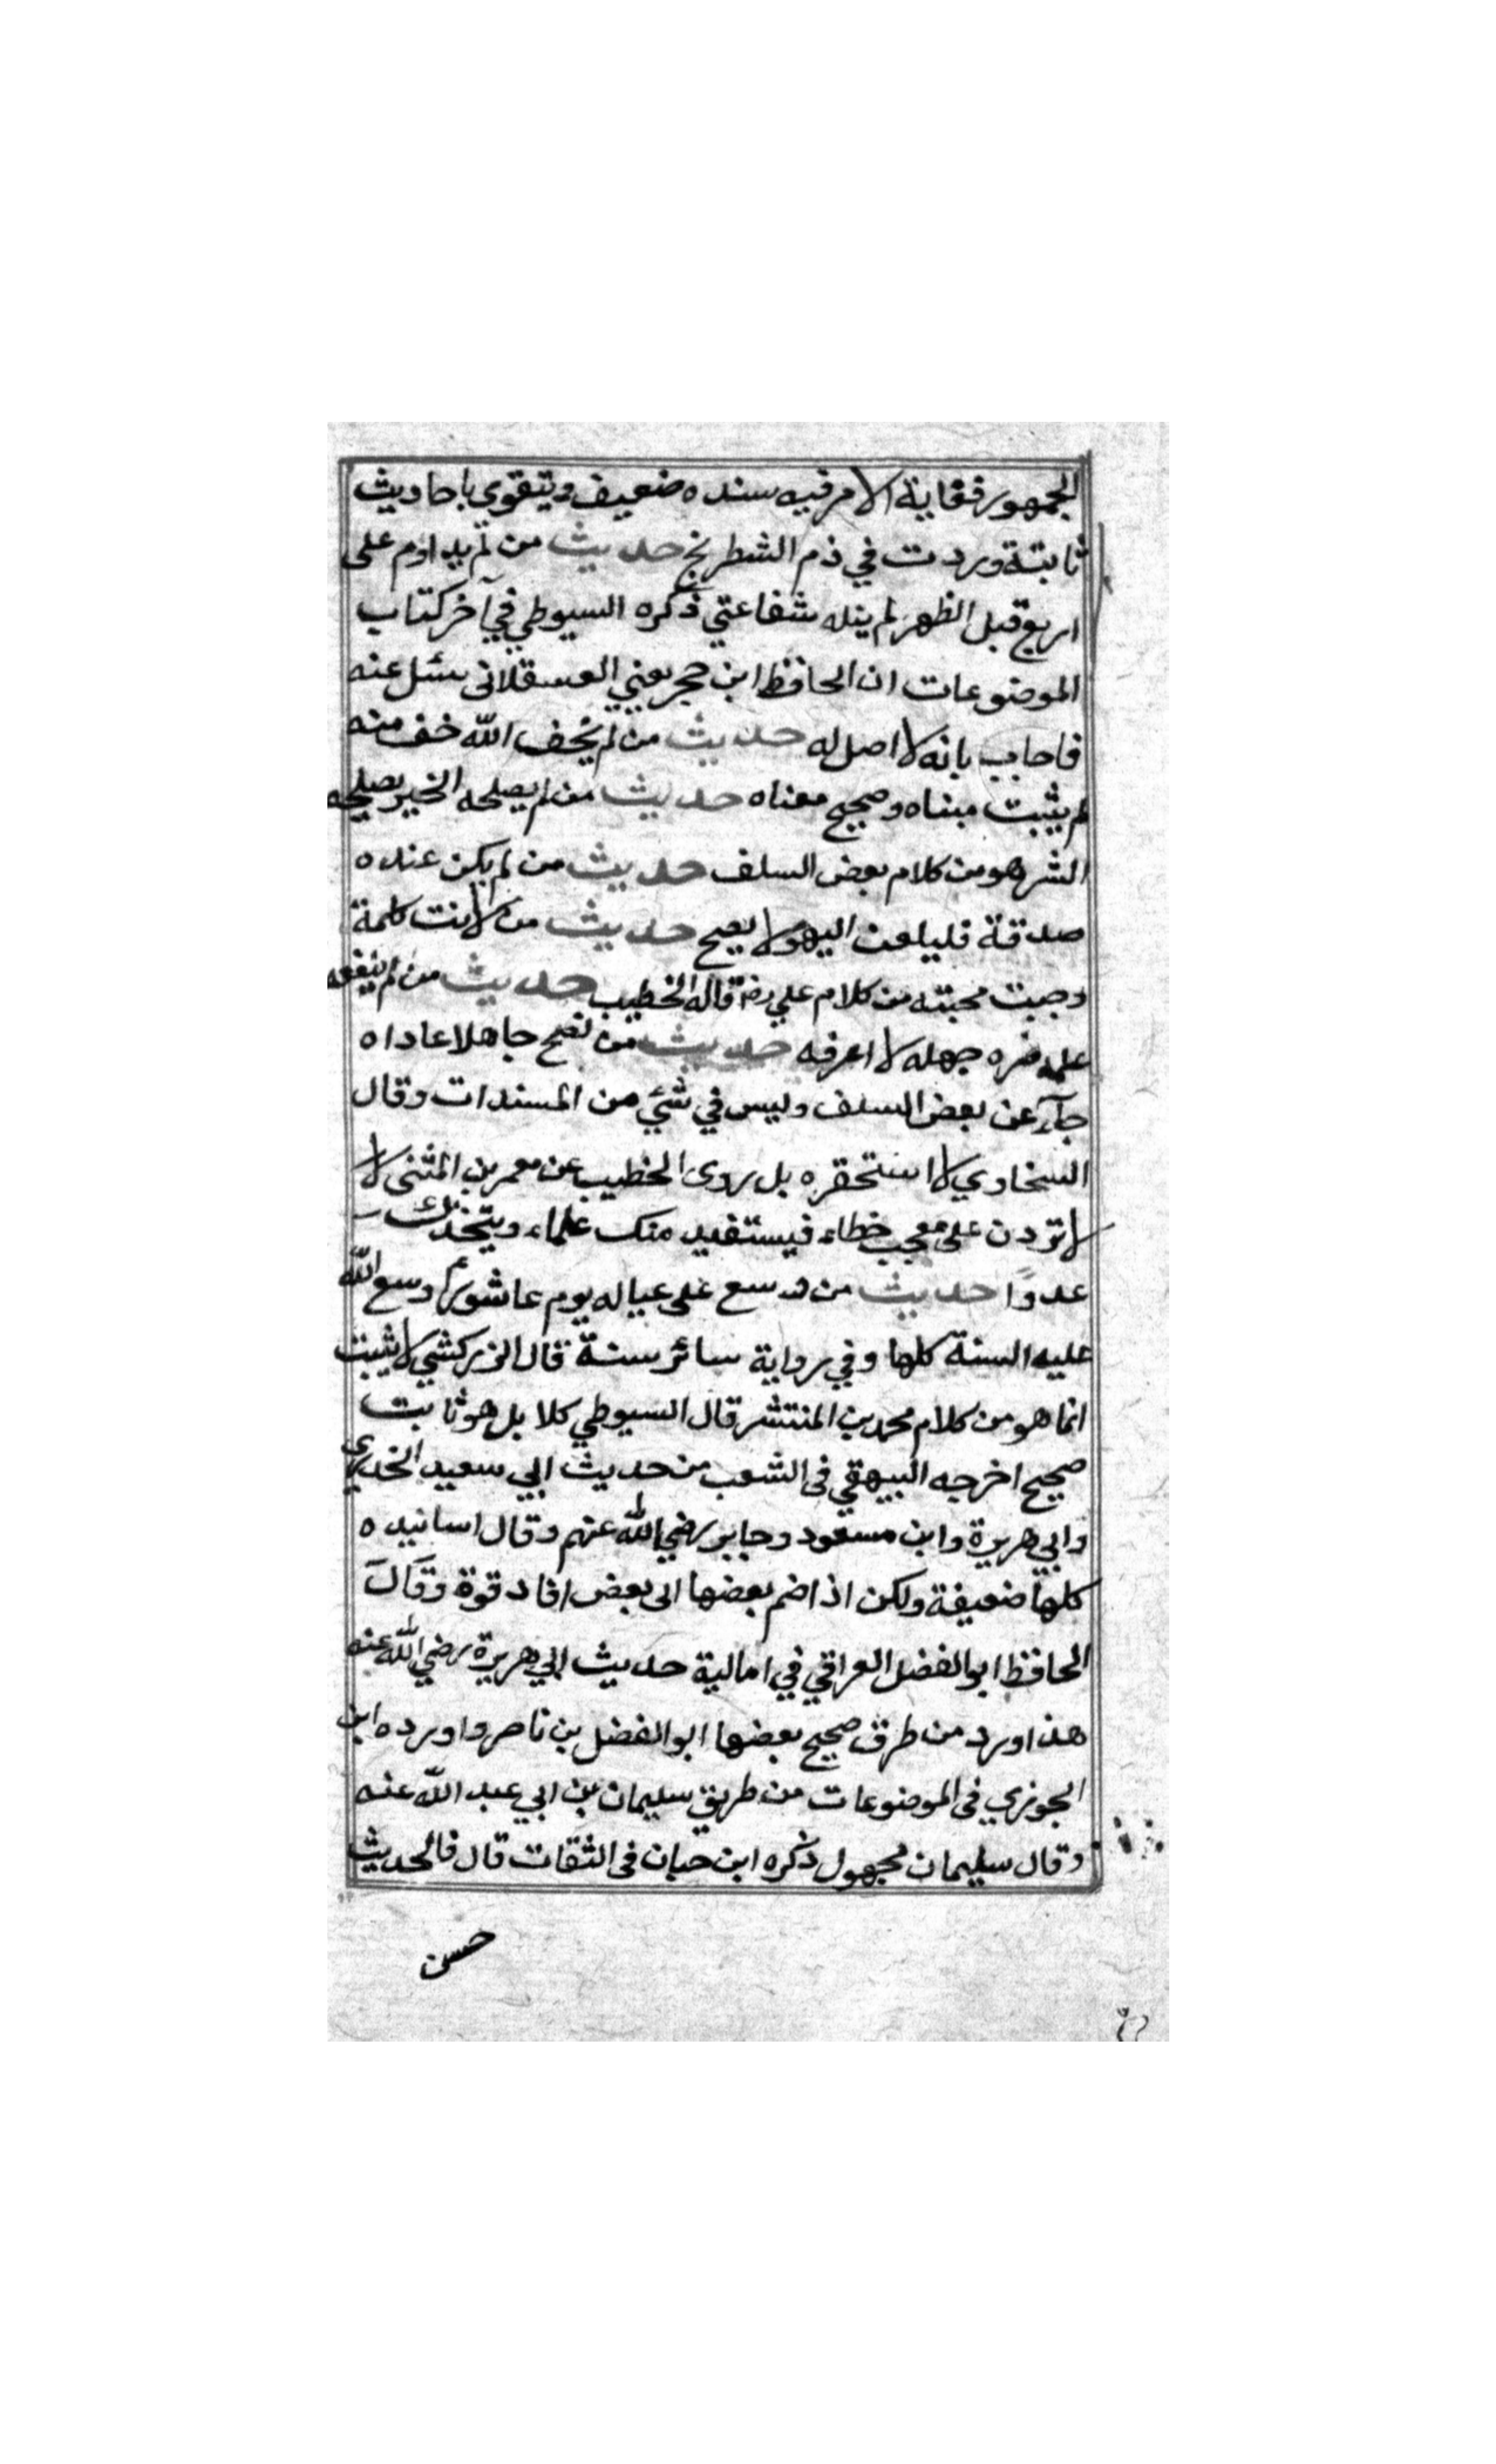 الجمهور فغاية الامر فيه سنده ضعيف ويتقوى باحاديث
ثابتة وردت في ذم الشطرنج حديث من لم يداوم على
اربع قبل الظهر لم ينله شفاعتي ذكره السيوطي في آخر كتاب
الموضوعات ان الحافظ ابن حجر يعني العسقلاني سئل عنه
فاجاب بانه لا اصل له حديث من لم يخف الله خف منه
لم يثبت مبناه وصحيح معناه حديث من لم يصلحه الخير يصلحه
الشر هو من كلام بعض السلف حديث من لم يكن عنده
صدقة فليلعن اليهود لا يصح حديث من لانت كلمة
وجبت محبته من كلام علي رضه قاله الخطيب حديث من لم ينفعه
علمه ضره جهله لا اعرفه حديث من نصح جاهلا عاداه
جآء عن بعض السلف وليس في شئي من المسندات وقال
السخاوي لا استحقره بل روى الخطيب عن معمر بن المثنى لا
لا تردن على معجب خطاء فيستفيد منك علماء ويتخذك
عدوًا حديث من وسع على عياله يوم عاشوراء وسع الله
عليه السنة كلها وفي رواية سائر سنة قال الزركشي لا يثبت
انما هو من كلام محمد بن المنتشر قال السيوطي كلا بل هو ثابت
صحيح اخرجه البيهقي فى الشعب من حديث ابي سعيد الخدري
وابي هريرة وابن مسعود وجابر رضي الله عنهم وقال اسانيده
كلها ضعيفة ولكن اذا ضم بعضها الى بعض افاد قوة وقال
الحافظ ابو الفضل العراقي في امالية حديث ابي هريرة رضي الله عنه
هذا ورد من طرق صحيح بعضها ابو الفضل بن ناصر واورده ابن
الجوزي فى الموضوعات من طريق سليمان بن ابي عبد الله عنه
وقال سليمان مجهول ذكره ابن حبان فى الثقات قال فالحديث
حسن